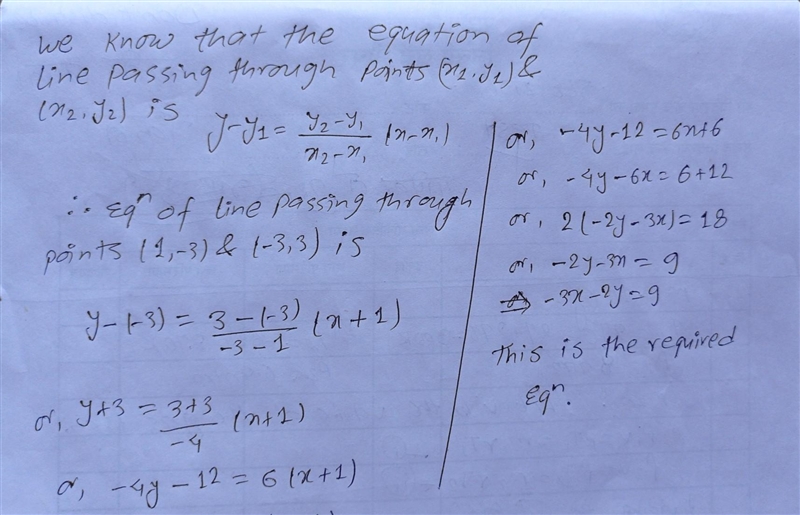 We know that the equation of
line passing through points (x₁, y₁) &
(x₂, y₂) is
y-y₁ = (y₂-y₁)/(x₂-x₁) (x-x₁)
∴ Eqⁿ of line passing through
points (1,-3) & (-3,3) is
y-(-3) = (3-(-3))/(-3-1) (x+1)
or, y+3 = (3+3)/(-4) (x+1)
or, -4y-12 = 6(x+1)
or, -4y-12 = 6x+6
or, -4y-6x = 6+12
or, 2(-2y-3x) = 18
or, -2y-3x = 9
-3x-2y = 9
This is the required
Eqⁿ.